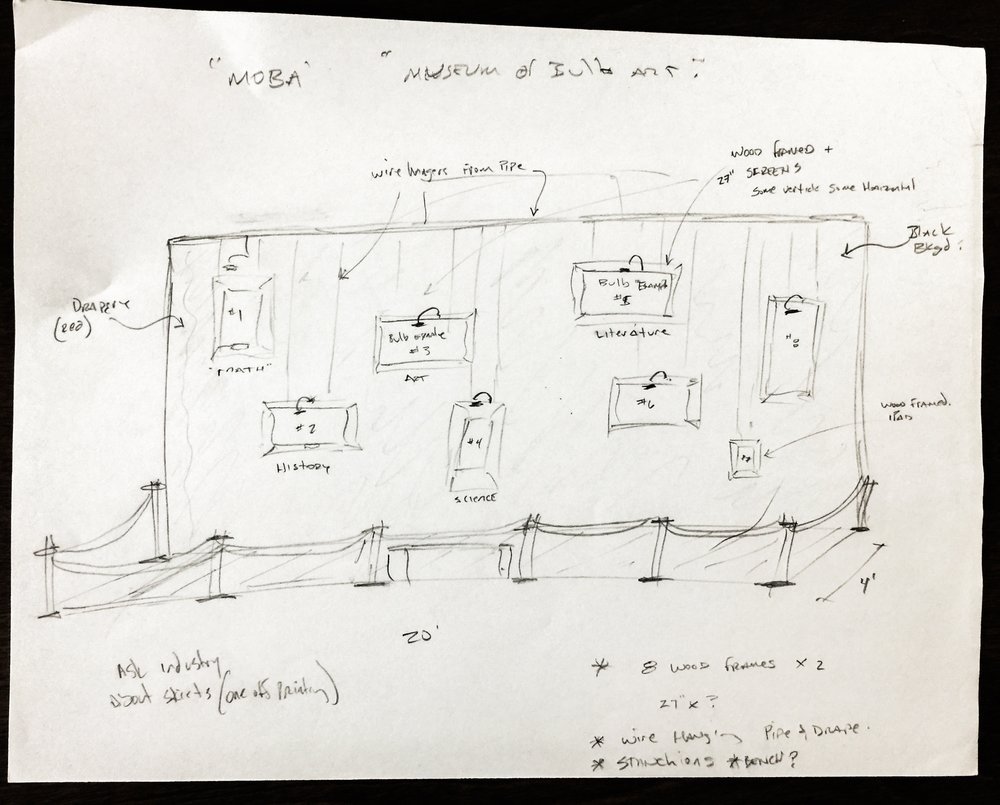 "MOBA" "MUSEUM of Bulb ART?
wire Hangers From Pipe
WOOD FRAMED +
27" SCREENS
Some verticle Some Horizontal
Black
Bkgd.
DRAPERY
(RED)
#1
"MATH"
Bulb Example
#3
ART
Bulb Example
#5
Literature
#8
#2
HISTORY
#4
SCIENCE
#6
WOOD FRAMED
IPAD
#7
4'
20'
Ask industry
About shirts (one offs printing)
* 8 WOOD FRAMES x 2
27" x ?
* Wire Hanging Pipe & Drape.
* STANCHIONS * BENCH?